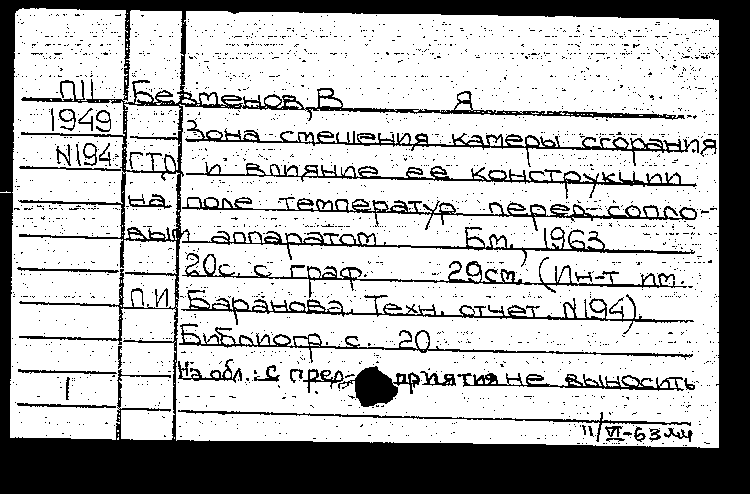 П11 Безменов, В Я
1949 Зона смешения камеры сгорания
N194 ГТД и влияние ее конструкции
на поле температур перед сопло-
вым аппаратом. Б.м., 1963
20с. с граф. 29см. (Ин-т им.
П.И. Баранова. Техн. отчет. N194).
Библиогр. с. 20.
1 На обл.: с предприятия не выносить
11/VI-63